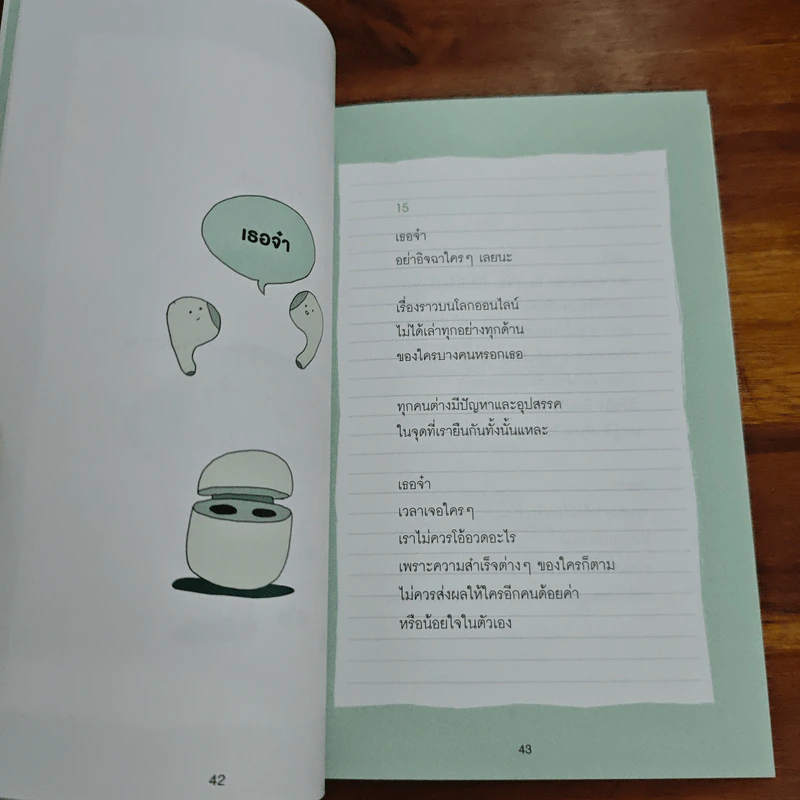 เธอจ๋า
42
15
เธอจ๋า
อย่าอิจฉาใครๆ เลยนะ
เรื่องราวบนโลกออนไลน์
ไม่ได้เล่าทุกอย่างทุกด้าน
ของใครบางคนหรอกเธอ
ทุกคนต่างมีปัญหาและอุปสรรค
ในจุดที่เรายืนกันทั้งนั้นแหละ
เธอจ๋า
เวลาเจอใครๆ
เราไม่ควรโอ้อวดอะไร
เพราะความสำเร็จต่างๆ ของใครก็ตาม
ไม่ควรส่งผลให้ใครอีกคนด้อยค่า
หรือน้อยใจในตัวเอง
43